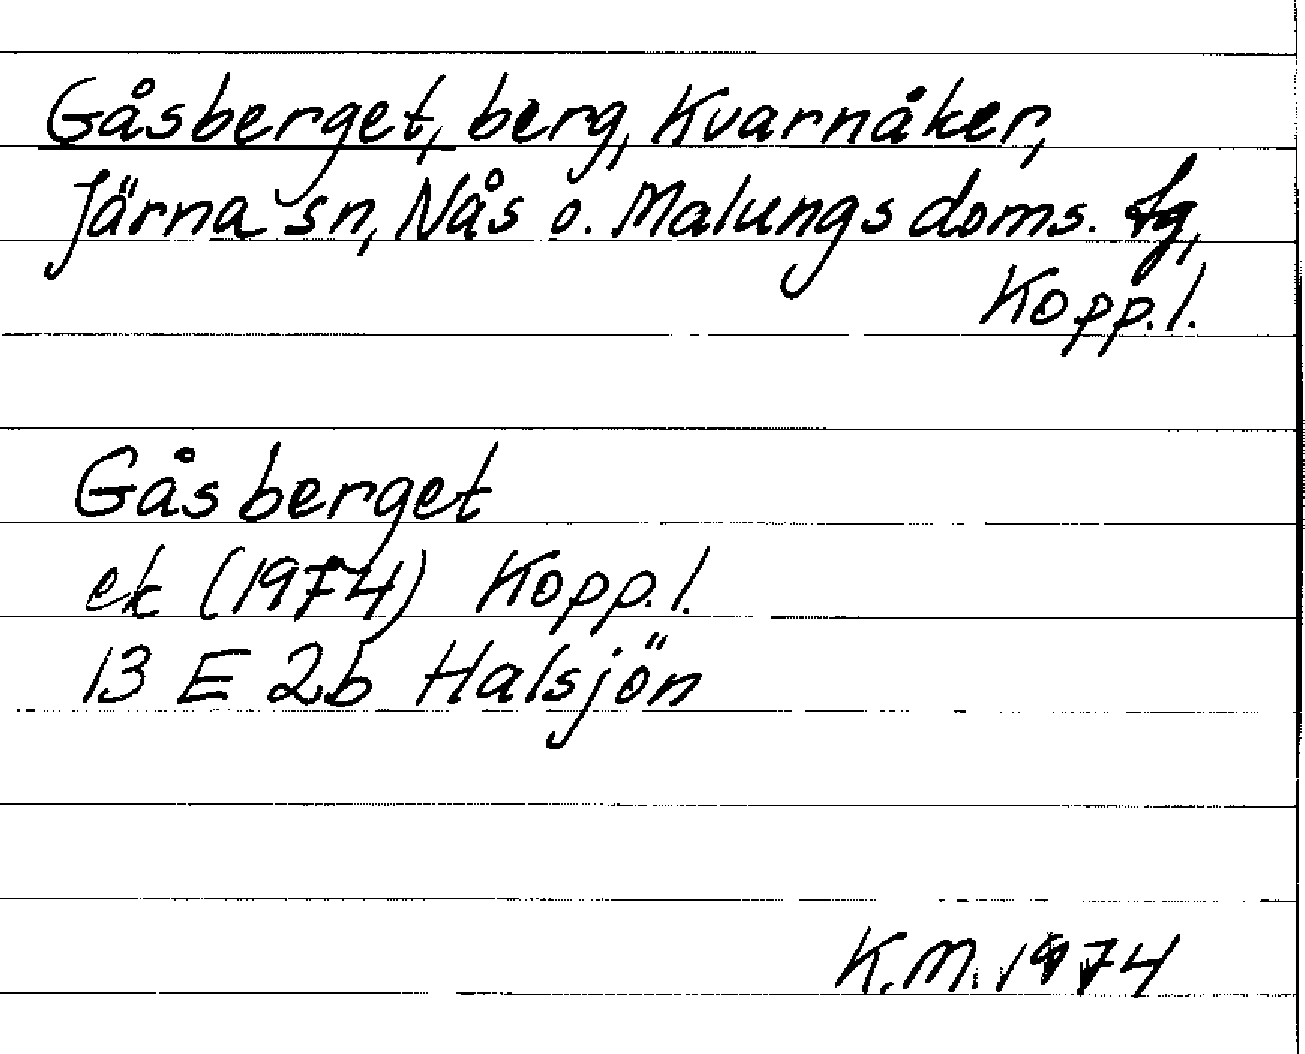 Gåsberget, berg, Kvarnåker,
Järna sn, Nås o. Malungs doms. fg,
Kopp.l.
Gåsberget
ek (1974) Kopp.l.
13 E 2b Halsjön
K.M. 1974